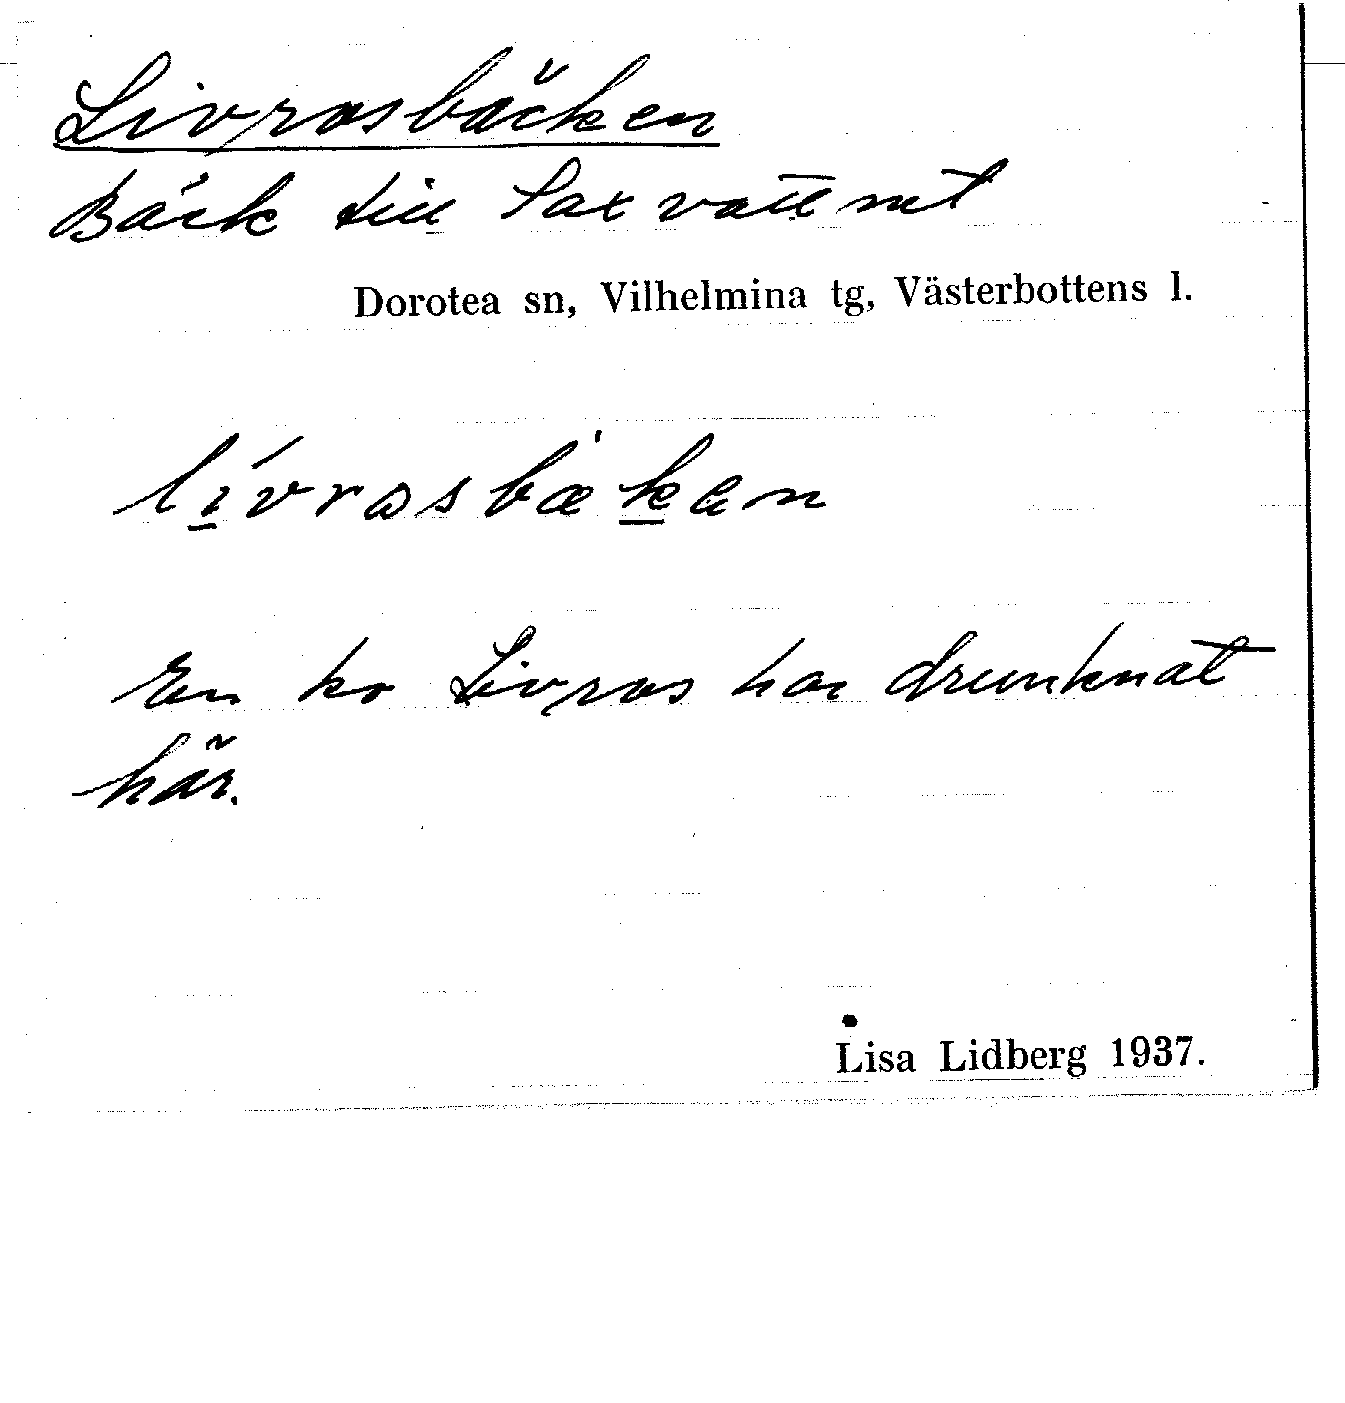 Livrosbäcken
Bäck till Saxvattnet
Dorotea sn, Vilhelmina tg, Västerbottens l.
lívrosbæ̀ken
En ko Livros har drunknat
här.
Lisa Lidberg 1937.